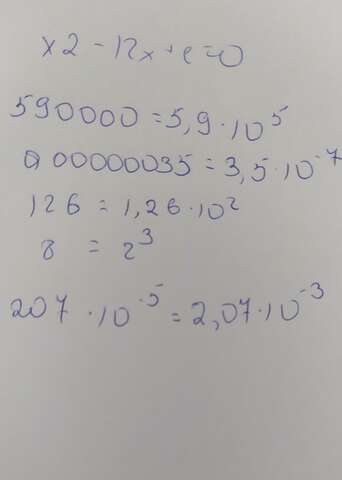 x2 - 12x + c = 0
590000 = 5,9 · 10⁵
0,00000035 = 3,5 · 10⁻⁷
126 = 1,26 · 10²
8 = 2³
207 · 10⁻⁵ = 2,07 · 10⁻³